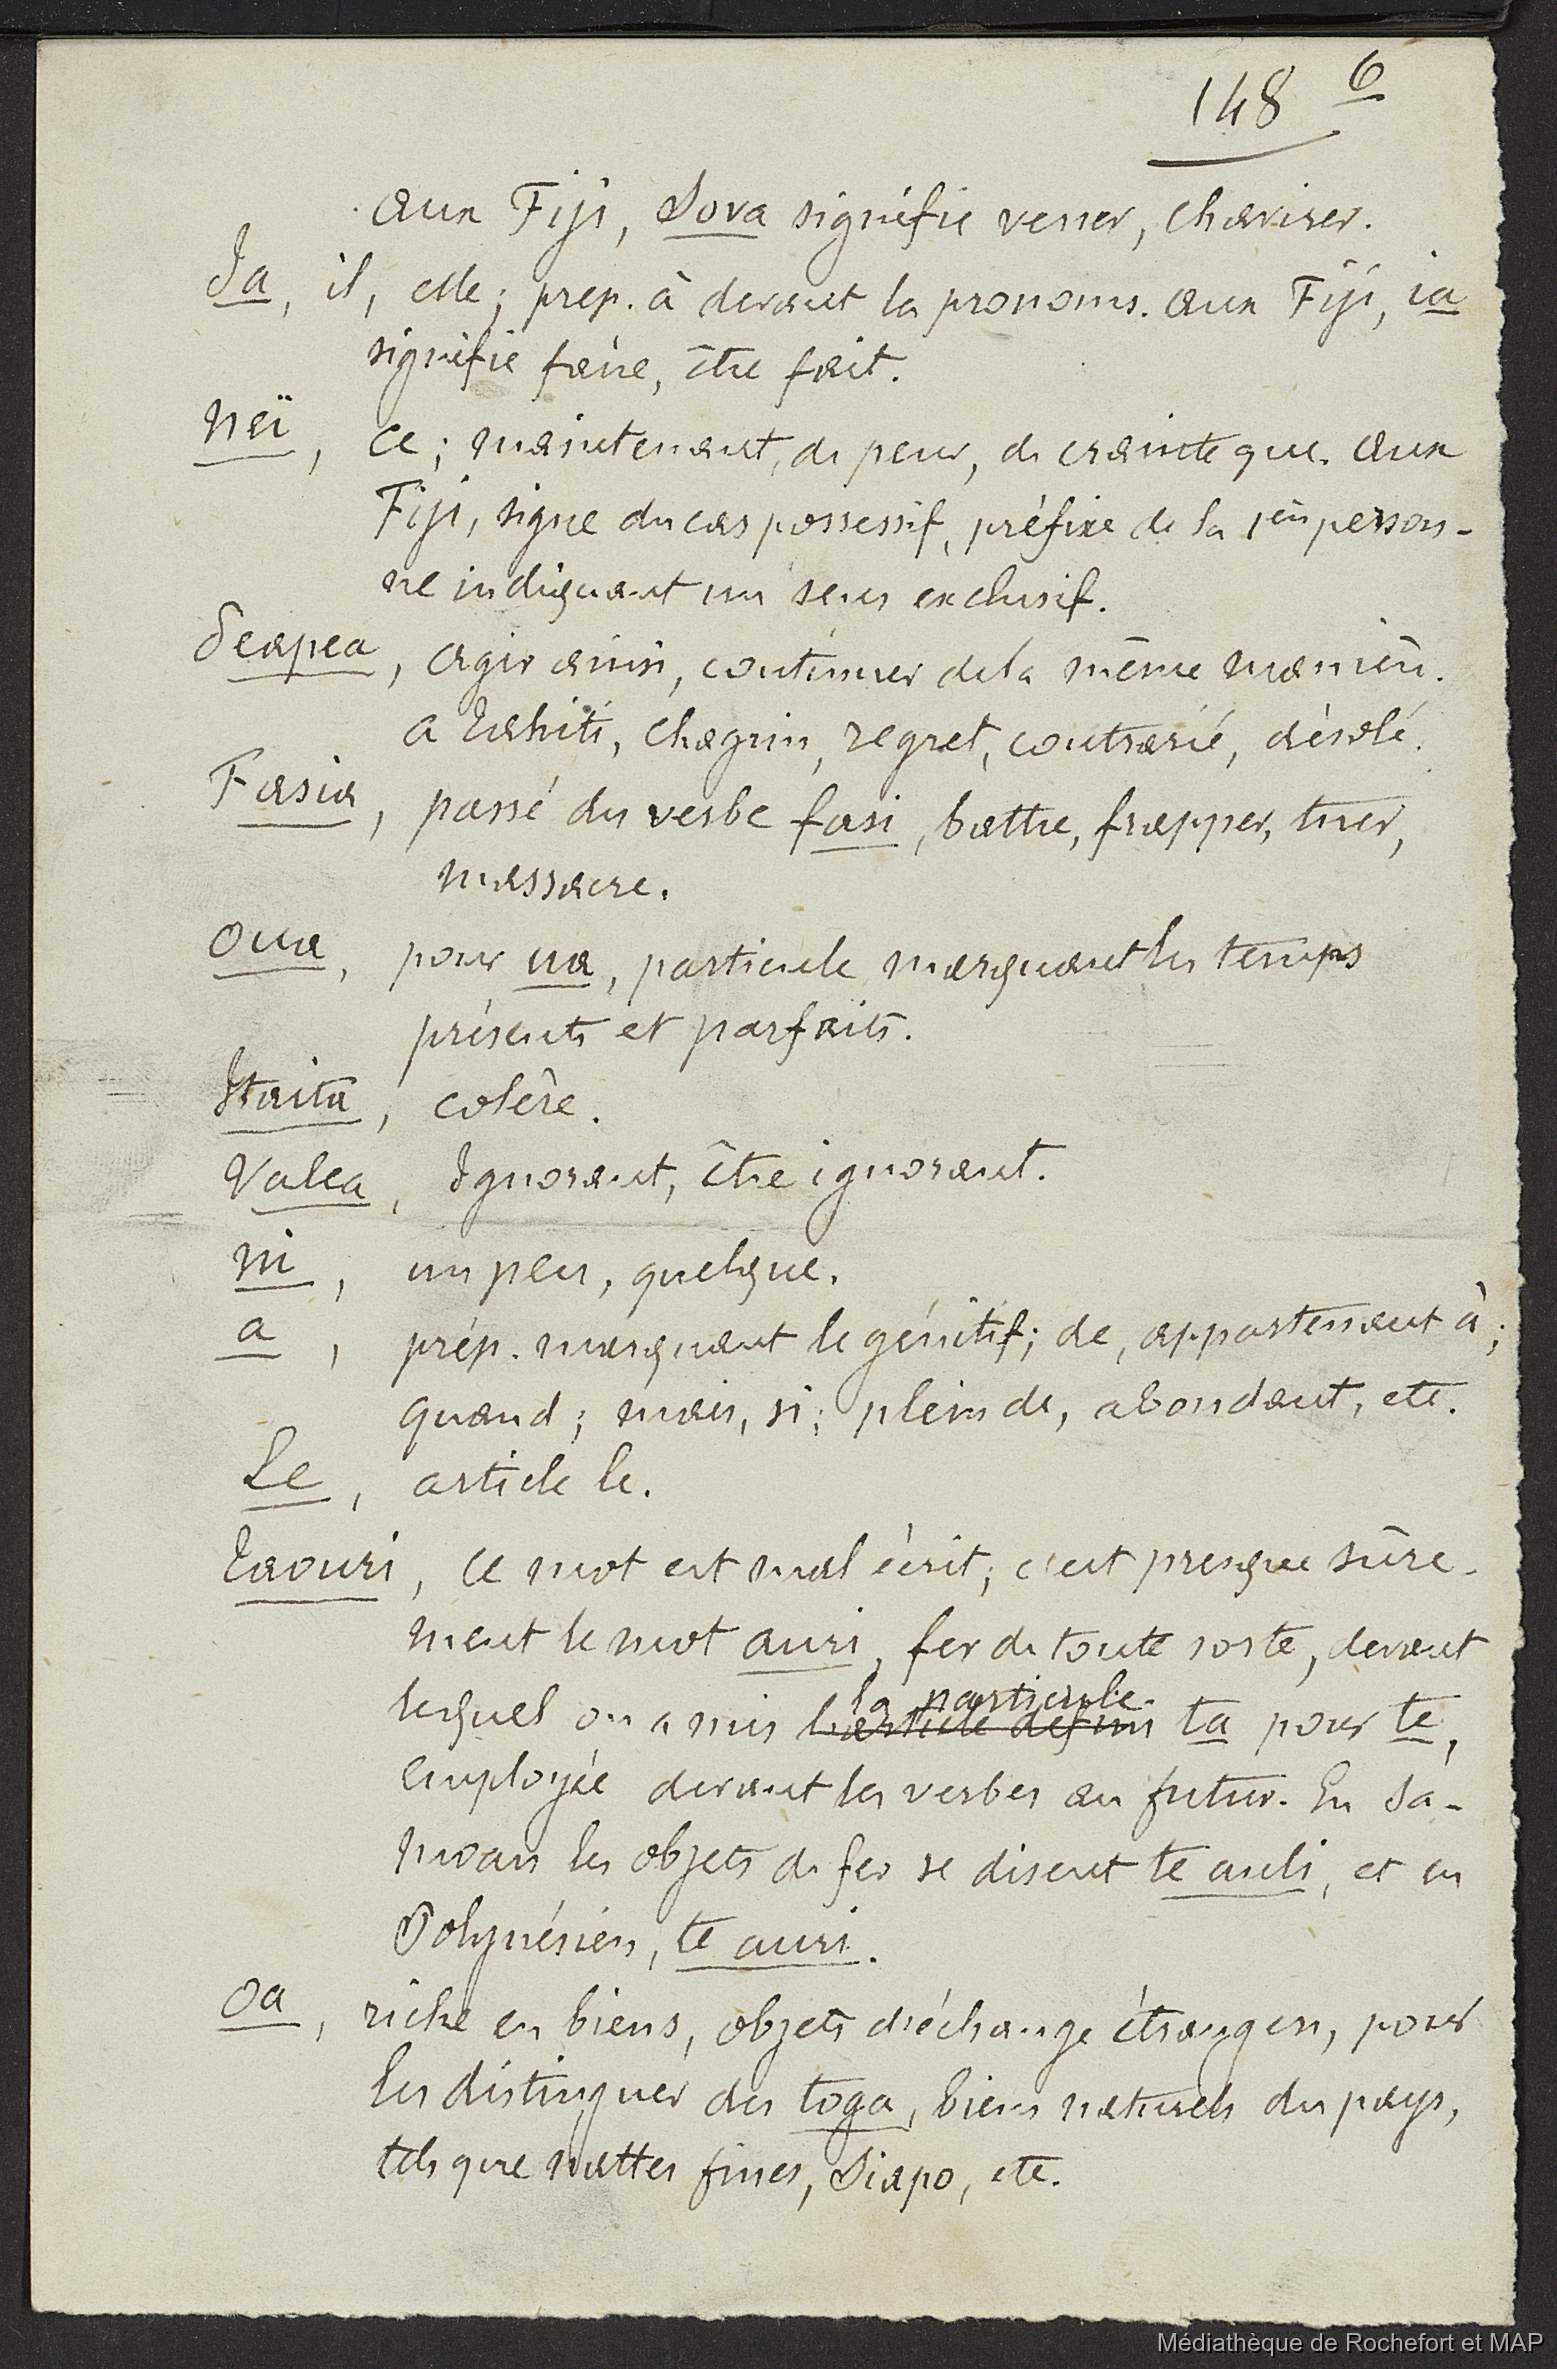 148 6
aux Fiji, Sova signifie verser, chavirer.
Ia, il, elle; prep. à devant les pronoms. aux Fiji, ia
signifie faire, être fait.
Neï, ce; maintenant, de peur, de crainte que. aux
Fiji, signe du cas possessif, préfixe de la 1ère person-
ne indiquant un sens exclusif.
Seapea, agir ainsi, continuer de la même manière.
a Tahiti, chagrin, regret, contrarié, désolé.
Fasia, passé du verbe fasi, battre, frapper, tuer,
massacre.
Oua, pour ua, particule marquant les temps
présents et parfaits.
Itaita, colère.
Valea, Ignorant, être ignorant.
ni, un peu, quelque.
a, prép. marquant le génitif; de, appartenant à;
quand; mais, si; plein de, abondant, etc.
Le, article le.
Taouri, ce mot est mal écrit; c'est presque sûre-
ment le mot auri, fer de toute sorte, devant
la particule
lequel on a mis l'article défini ta pour te,
employée devant les verbes au futur. En Sa-
moan les objets de fer se disent te auli, et en
Polynésien, te auri.
Oa, riche en biens, objets d'échange étrangers, pour
les distinguer des toga, biens naturels du pays,
tels que nattes fines, Siapo, etc.
Médiathèque de Rochefort et MAP